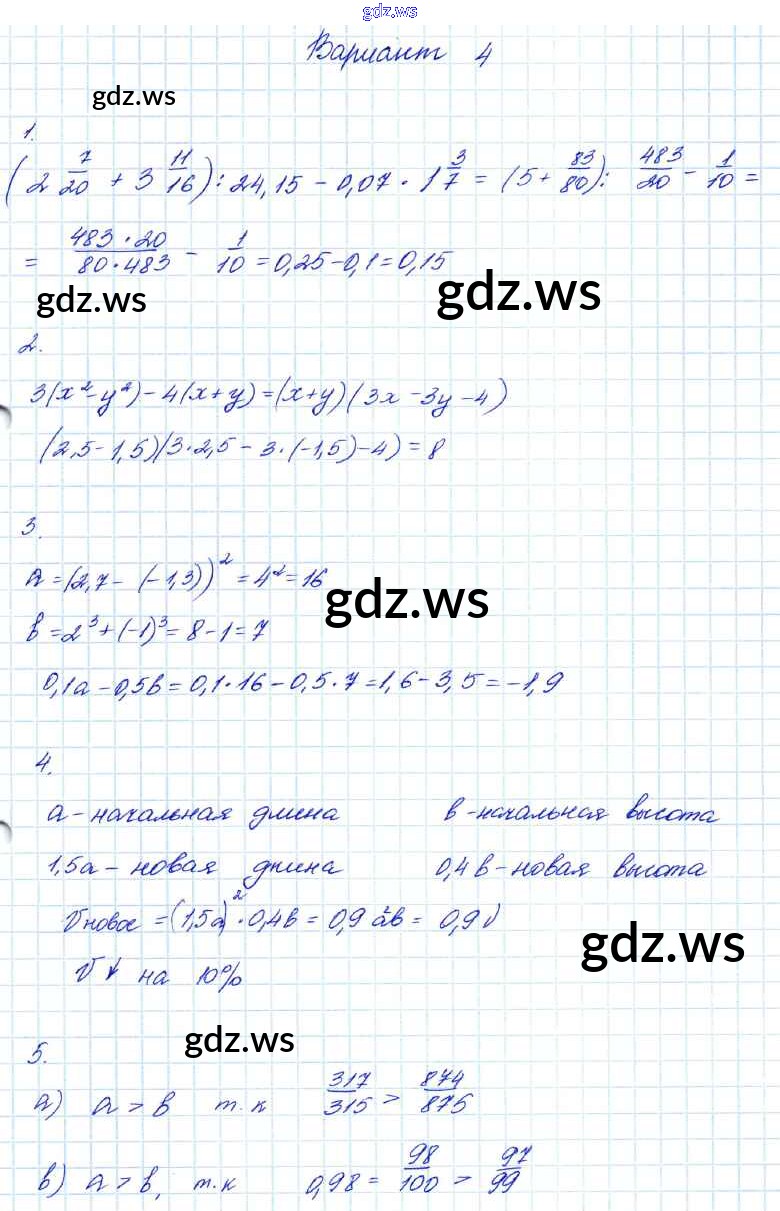 gdz.ws
Вариант 4
gdz.ws
1.
(2 7/20 + 3 11/16) : 24,15 - 0,07 · 1 3/7 = (5 + 83/80) : 483/20 - 1/10 =
= 483·20/80·483 - 1/10 = 0,25 - 0,1 = 0,15
gdz.ws gdz.ws
2.
3(x² - y²) - 4(x + y) = (x + y)(3x - 3y - 4)
(2,5 - 1,5)(3·2,5 - 3·(-1,5) - 4) = 8
3.
a = (2,7 - (-1,3))² = 4² = 16
gdz.ws
b = 2³ + (-1)³ = 8 - 1 = 7
0,1a - 0,5b = 0,1·16 - 0,5·7 = 1,6 - 3,5 = -1,9
4.
a - начальная длина b - начальная высота
1,5a - новая длина 0,4b - новая высота
Vновое = (1,5a)² · 0,4b = 0,9 a²b = 0,9V
gdz.ws
V↓ на 10%
gdz.ws
5.
а) a > b т.к 317/315 > 874/875
в) a > b, т.к 0,98 = 98/100 > 97/99